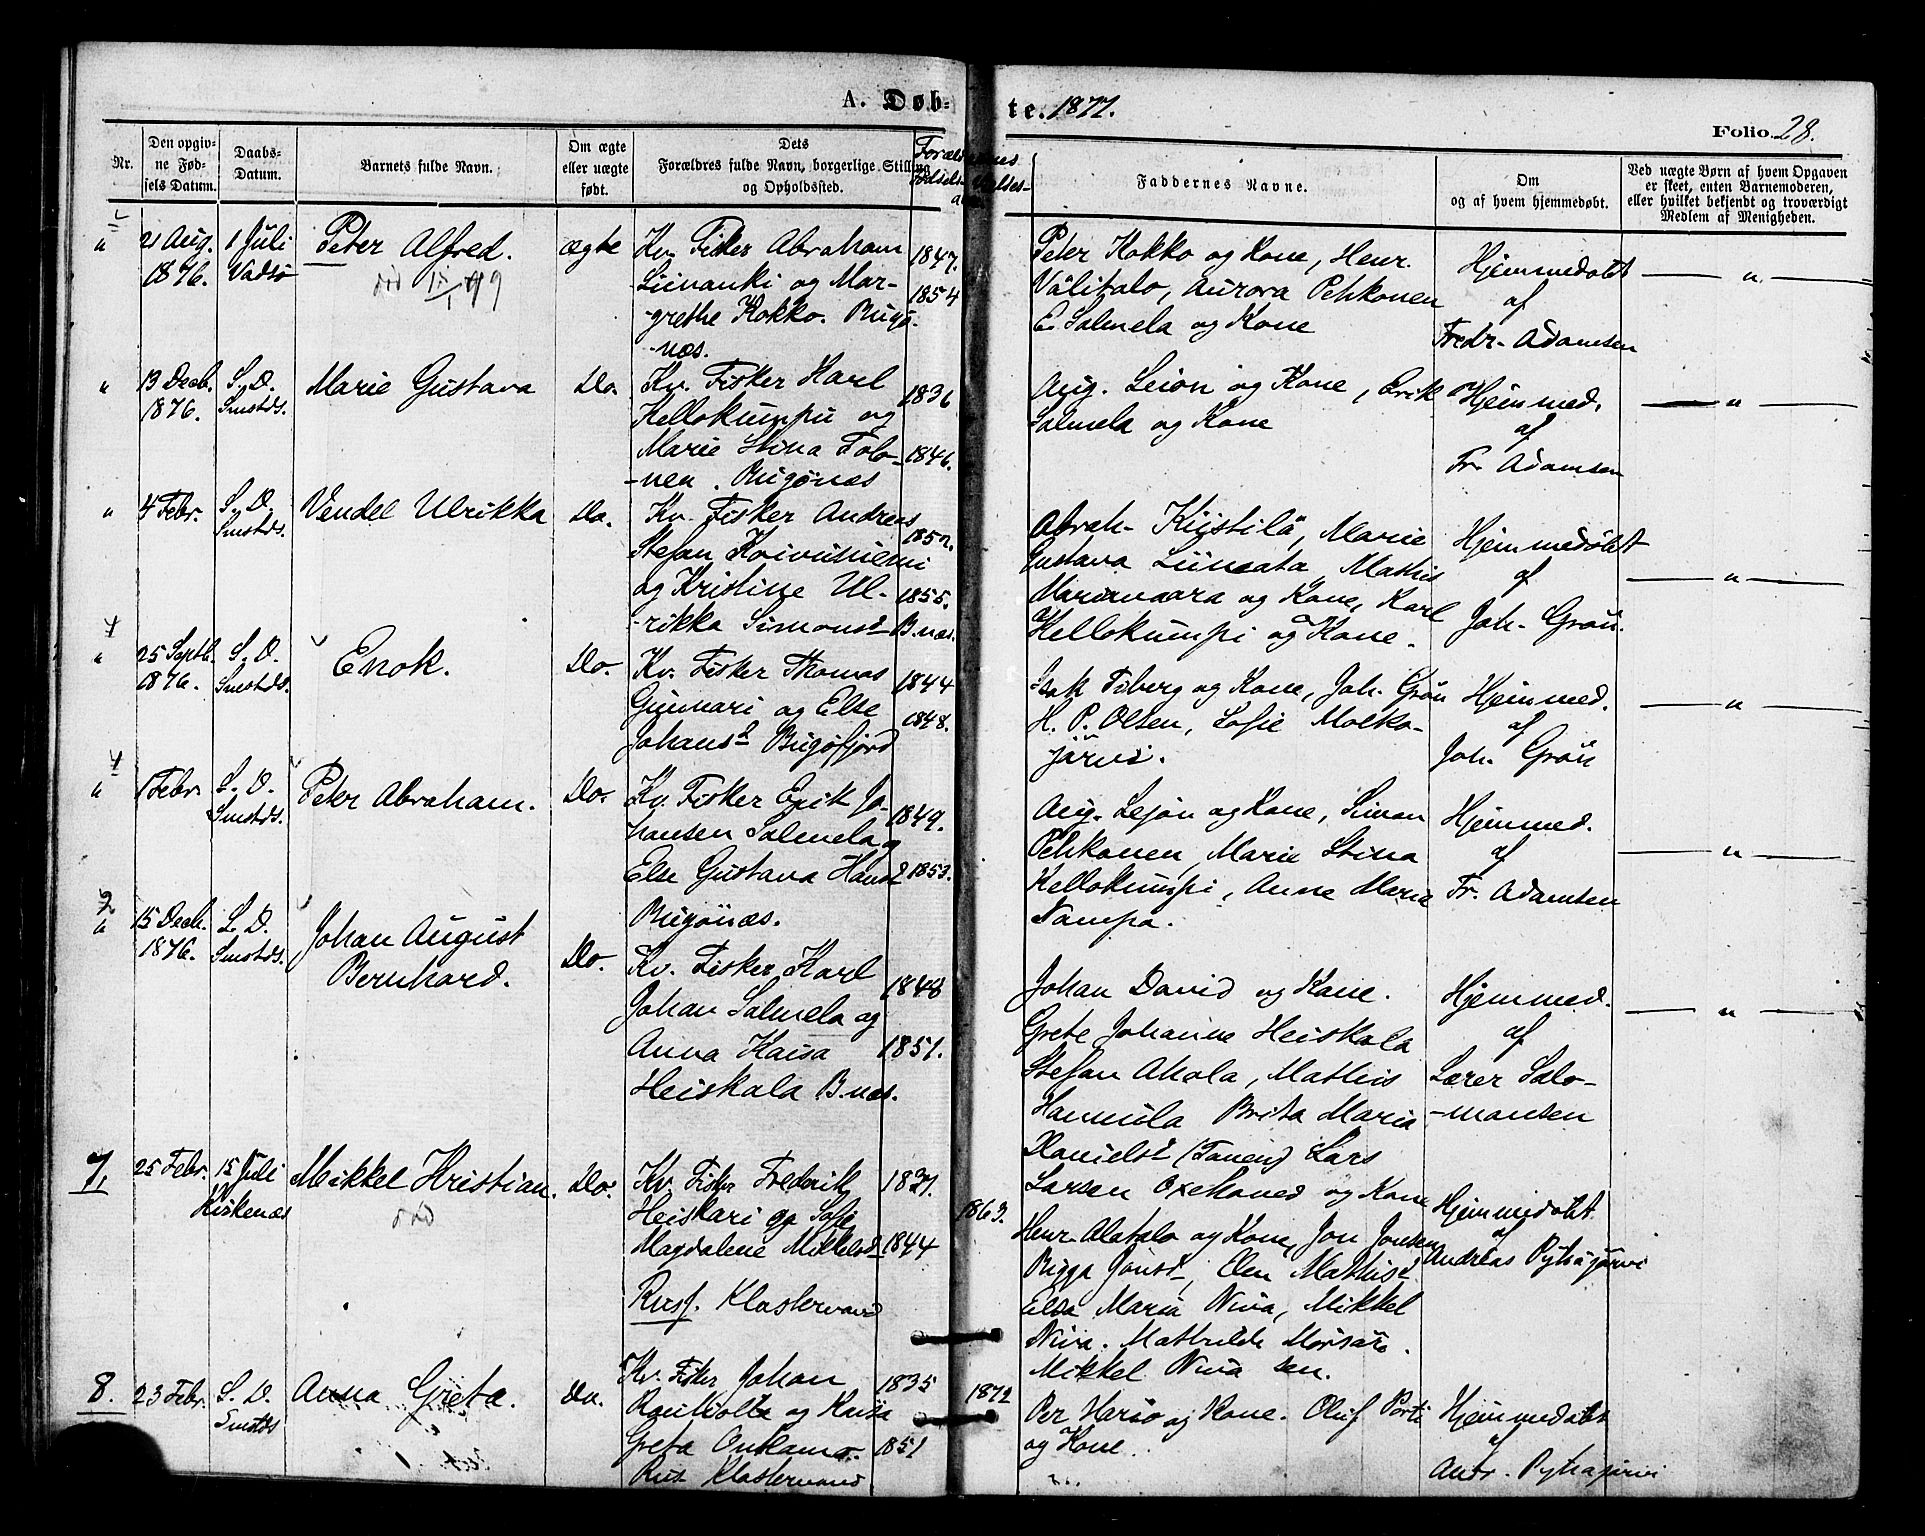 A. Døb-
te. 1877.
Folio. 28.
Nr.
Den opgiv-
ne Fød-
sels Datum.
Daabs-
Datum.
Barnets fulde Navn.
Om ægte
eller uægte
født.
Dets
Forældres fulde Navn, borgerlige Stilling
og Opholdssted.
Faddernes Navne.
Om
og af hvem hjemmedøbt.
Ved uægte Børn af hvem Opgaven
er skeet, enten Barnemoderen,
eller hvilket bekjendt og troværdigt
Medlem af Menigheden.
" 21 Aug. 1 Juli Peter Alfred. ægte Kv. Fisker Abraham 1847.
1876. Vadsø død 99 Liinanki og Mar- 1854
grethe Kokko. Bugø-
-næs.
Peter Kokko og Kone, Henr.
Välitalo, Aurora Pehkonen
E. Salmela og Kone
Hjemmedøbt
af
Fredr. Adamsen
— " —
" 13 Decb. S. D. Marie Gustava Do. Kv. Fisker Karl 1836
1876. Smstds. Kellokumpu og
Marie Stina Tolo- 1846.
-nen. Bugønæs
Aug. Leion og Kone, Erik
Salmela og Kone
Hjemmed.
af
Fr. Adamsen
— " —
" 4 Febr. S. D. Vendel Ulrikka Do. Kv. Fisker Andreas
Smstds. Stefan Koivuniemi 1852.
og Kristine Ul- 1855.
-rikka Simonsd B.næs.
Abrah. Kijstilä, Marie
Gustava Liimata, Mathis
Marinvaara og Kone, Karl
Kellokumpi og Kone.
Hjemmedøbt
af
Joh. Grön.
— " —
" 25 Septb. S. D. Enok. Do. Kv. Fisker Thomas 1844
1876. Smstds. Gunnari og Else 1848.
Johansd Bugøfjord
Isak Tiberg og Kone, Joh. Grön
H. P. Olsen, Sofie Molko-
järvi.
Hjemmed.
af
Joh. Grön
— " —
" 1 Febr. S. D. Peter Abraham. Do. Kv. Fisker Erik Jo-
Smstds. hansen Salmela og 1849.
Else Gustava Hansd 1853.
Bugønæs.
Aug. Lejon og Kone, Simon
Pehkonen, Marie Stina
Kellokumpi, Anne Marie
Nampa.
Hjemmed.
af
Fr. Adamsen
— " —
" 15 Decb. S. D. Johan August Do. Kv. Fisker Karl 1848
1876. Smstds. Bernhard. Johan Salmela og
Anna Kaisa 1851.
Heiskala B.næs.
Johan David og Kone.
Grete Johanne Heiskala
Stefan Ahola, Mathis
Hannula Brita Maria
Danielsd Lars
Larsen Oxehoved og Kone
Hjemmed.
af
Lærer Salo-
-monsen
— " —
7. 25 Febr. 15 Juli Mikkel Kristian. Do. Kv. Fisker Frederik 1837.
Kirkenæs død Heiskari og Sofie 1863.
Magdalene Mikkelsd 1844
Rusf. Klostervand
Henr. Alatalo og Kone, Jon Jonsen
Bigga Jonsd, Elen Mathisd
Elsa Maria Niva, Mikkel
Niva. Mathilde
Mikkel Niva sen.
Hjemmedøbt
af
Andreas Pyhäjärvi
8. 23 Febr. S. D. Anna Greta. Do. Kv. Fisker Johan 1835 1872
Smstds og Kaisa
Greta 1851
Rus Klostervand
Per og Kone. Oluf Porti
og Kone.
Hjemmedøbt
af
Andr. Pyhajärvi